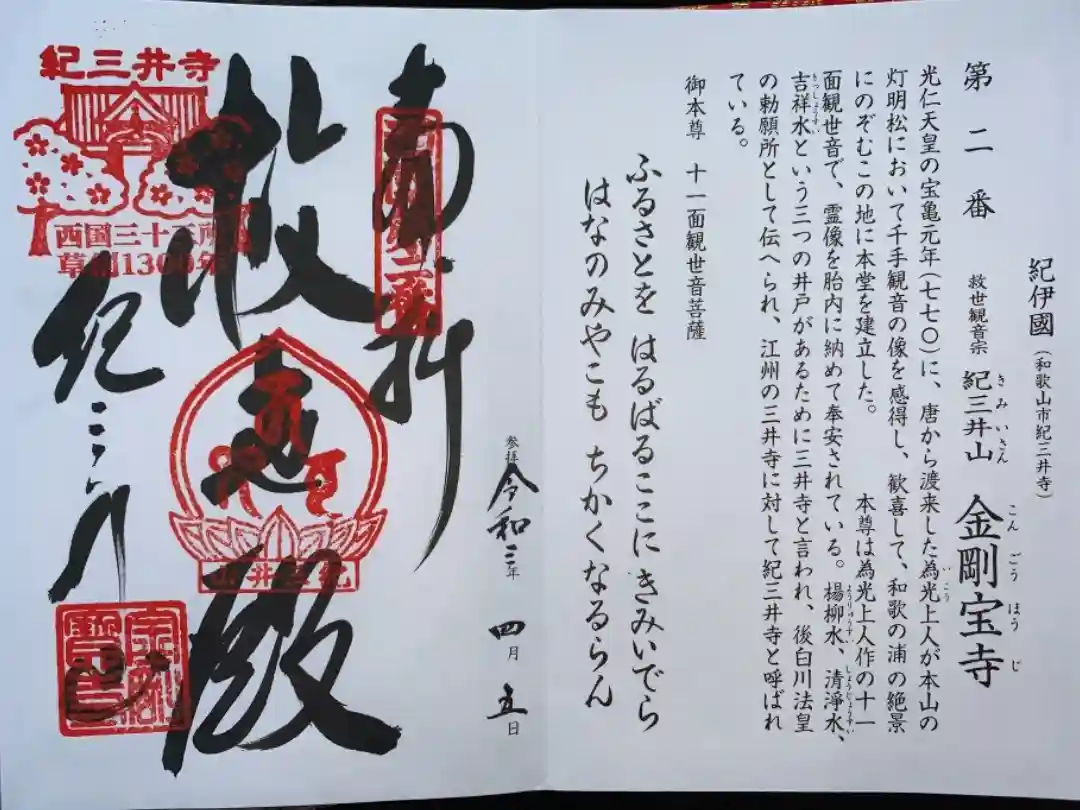 紀伊國(和歌山市紀三井寺)
第二番 救世観音宗 紀三井山 金剛宝寺
きみいさん
こんごうほうじ
光仁天皇の宝亀元年(七七〇)に、唐から渡来した為光上人が本山の
いこう
灯明松において千手観音の像を感得し、歓喜して、和歌の浦の絶景
にのぞむこの地に本堂を建立した。 本尊は為光上人作の十一
面観世音で、霊像を胎内に納めて奉安されている。楊柳水、清淨水、
ようりゅうすい
しょうじょうすい
吉祥水という三つの井戸があるために三井寺と言われ、後白川法皇
きっしょうすい
の勅願所として伝へられ、江州の三井寺に対して紀三井寺と呼ばれ
ている。
御本尊 十一面観世音菩薩
ふるさとを はるばるここに きみいでら
はなのみやこも ちかくなるらん
参拝 令和三年 四月 五日
奉拝
救世殿
紀三井寺
紀三井寺
西国三十三所
草創1300年
紀三井山